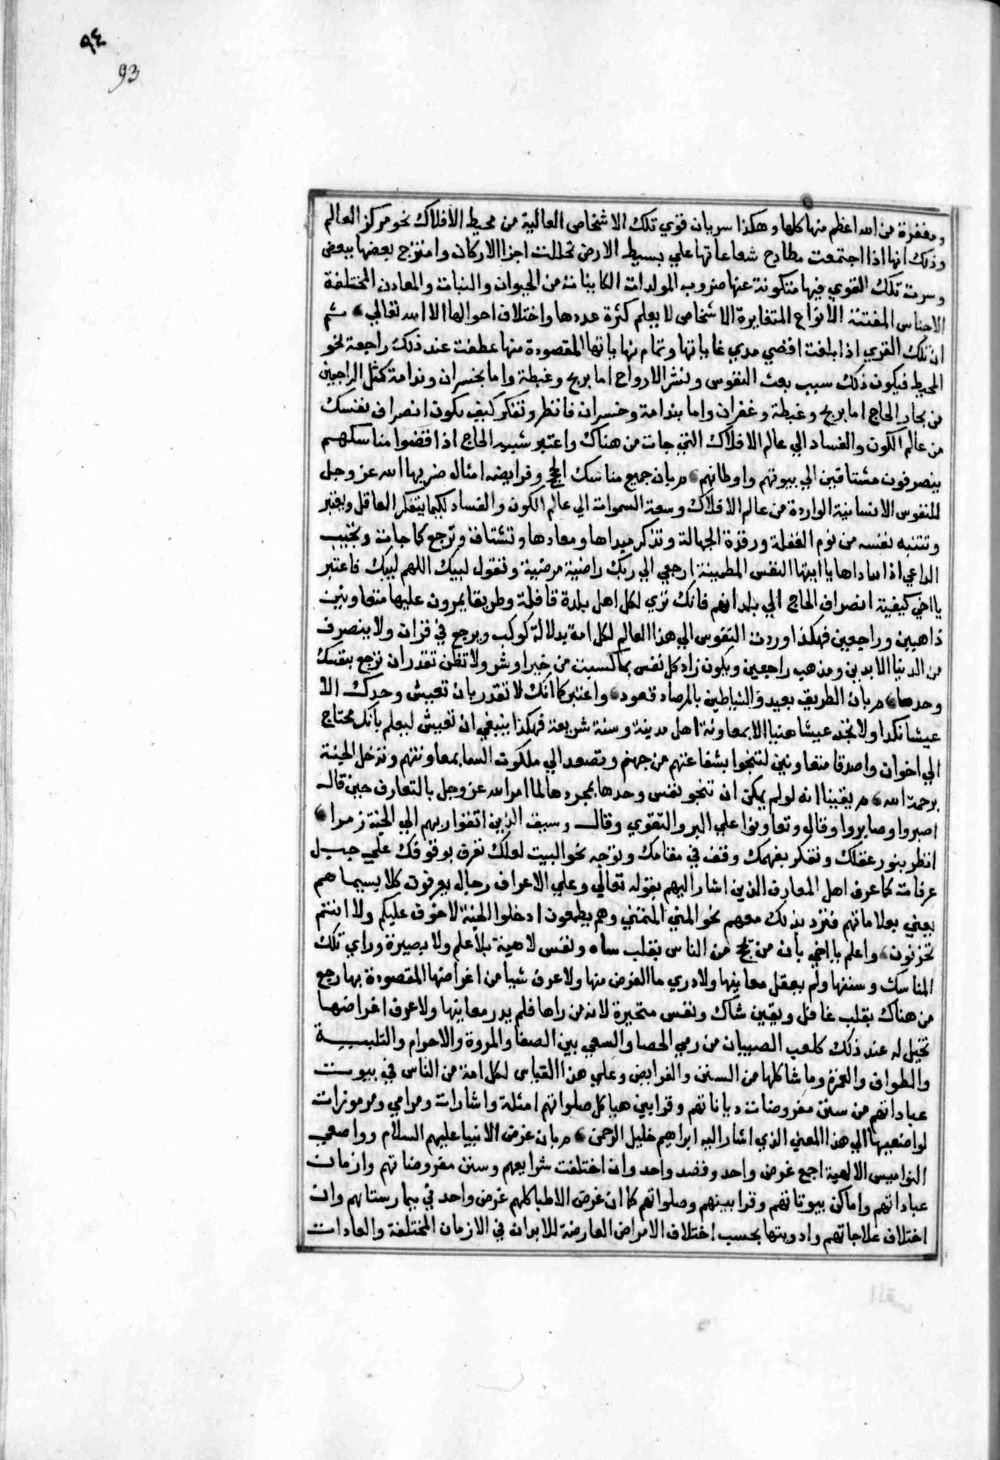 ٩٤
93
ومغفرة من الله اعظم منها كلها وهكذا سريان قوي تلك الاشخاص العالية من محيط الأفلاك نحو مركز العالم
وذلك انها اذا اجتمعت مطارح شعاعاتها علي بسيط الارض تحللت اجزا الاركان وامتزج بعضها ببعض
وسرت تلك القوي فيها متكونة عنها ضروب المولدات الكاينات من الحيوان والنبات والمعادن المختلفة
الاجناس المفتنة الأنواع المتغايرة الاشخاص لا يعلم كثرة عددها واختلاف احوالها الا الله تعالي ثم
ان تلك القوي اذا بلغت اقصي مدي غاياتها وتمام نهاياتها المقصودة منها عطفت عند ذلك راجعة نحو
المحيط فيكون ذلك سبب بعث النفوس ونشر الارواح اما بربح وغبطة واما بخسران وندامة كمثل الراجعين
من الحاج اما بربح وغبطة وغفران واما بندامة وخسران فانظر وتفكر كيف يكون انصراف نفسك
من عالم الكون والفساد الي عالم الافلاك التي جات من هناك واعتبر شبيه الحاج اذا قضوا مناسكهم
ينصرفون مشتاقين الي بيوتهم واوطانهم بان جميع مناسك الحج وفرايضه امثال ضربها الله عز وجل
للنفوس الانسانية الواردة من عالم الافلاك وسعة السموات الي عالم الكون والفساد لكيما يتفكر العاقل ويعتبر
وتنتبه نفسه من نوم الغفلة ورقدة الجهالة وتذكر مبداها ومعادها وتشتاق وترجع كما جات وتجيب
الداعي اذا ناداها يا ايتها النفس المطمينة ارجعي الي ربك راضية مرضية وتقول لبيك اللهم لبيك فاعتبر
يا اخي كيفية انصراف الحاج الي بلدانهم فانك تري لكل اهل بلدة قافلة وطريقا يمرون عليها متعاونين
ذاهبين وراجعين فهكذا وردت النفوس الي هذا العالم لكل امة بدلالة كوكب ويرجع في قران ولا ينصرف
من الدنيا الا بدين ومذهب راجعين ويكون زاد كل نفس بما كسبت من خير او شر ولا تظن تقدر ان ترجع بنفسك
وحدها بان الطريق بعيد والشياطين بالمرصاد قعود واعتبر كما انك لا تقدر بان تعيش وحدك الا
عيشا نكدا ولا تجد عيشا هنيا الا بمعاونة اهل مدينة وسنة شريعة فهكذا ينبغي ان تعيش ليعلم بانك محتاج
الي اخوان واصدقا متعاونين لتنجوا بشفاعتهم من جهنم وتصعد الي ملكوت السما بمعاونتهم وتدخل الجنة
برحمة الله يقينا انه لو لم يمكن ان تنجو نفس وحدها بمجردها لما امر الله عز وجل بالتعارف حين قال
اصبروا وصابروا وقال وتعاونوا علي البر والتقوي وقال وسيق الذين اتقوا ربهم الي الجنة زمرا
انظر بنور عقلك وتفكر بفهمك وقف في مقامك وتوجه نحو البيت لعلك تعرف بوقوفك علي جبل
عرفات كما عرف اهل المعارف الذين اشار اليهم بقوله تعالي وعلي الاعراف رجال يعرفون كلا بسيماهم
يعني بعلاماتهم فتزد بذلك معهم نحو المني المتمني وهم يطمعون ادخلوا الجنة لا خوف عليكم ولا انتم
تحزنون واعلم يا اخي بان من حج من الناس بقلب ساه ونفس لاهية بلا علم ولا بصيرة وراي تلك
المناسك وسننها ولم يعقل معانيها ولا دري ما الغرض منها ولا عرف شيا من اغراضها المقصودة بها رجع
من هناك بقلب غافل ويقين شاك ونفس متحيرة لانه من راها فلم يدر معانيها ولا عرف اغراضها
تخيل له عند ذلك كلعب الصبيان من رمي الحصا والسعي بين الصفا والمروة والاحرام والتلبية
والطواف والعمرة وما شاكلها من السنن والفرايض وعلي هذا القياس لكل امة من الناس في بيوت
عباداتهم من سنن مفروضات دياناتهم وقرابين هياكل صلواتهم امثلة واشارات ومرامي ومرموزات
لواضعيها الي هذا المعني الذي اشار اليه ابراهيم خليل الرحمن بان غرض الانبيا عليهم السلام وواضعي
النواميس الالهية اجمع غرض واحد وقصد واحد وان اختلفت شرايعهم وسنن مفروضاتهم وازمان
عباداتهم واماكن بيوتاتهم وقرابينهم وصلواتهم كما ان غرض الاطبا كلهم غرض واحد في بيمارستاتهم وان
اختلاف علاجاتهم وادويتها بحسب اختلاف الامراض العارضة للابدان في الازمان المختلفة والعادات